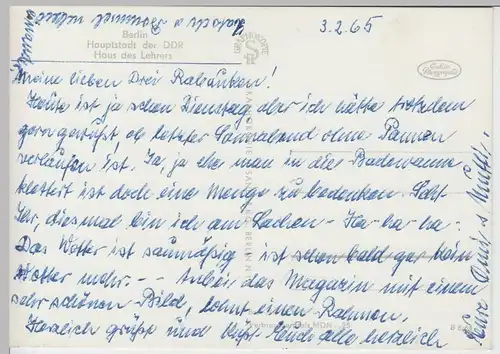 3.2.65
Berlin
Hauptstadt der DDR
Haus des Lehrers
Meine lieben Drei Rabauken!
Heute ist ja schon Dienstag aber ich hätte trotzdem
gern gewußt, ob letzter Sonnabend ohne Pannen
verlaufen ist. Ja, ja ehe man in die Badewanne
klettert ist doch eine Menge zu bedenken. Seht
Ihr, diesmal bin ich am Lachen - Ha-ha-ha-
Das Wetter ist saumäßig - ist schon bald gar kein
Wetter mehr. - - Anbei das Magazin mit einem
sehr schönen Bild, lohnt einen Rahmen.
Herzlich grüßt und küßt Euch alle herzlich
Eure Omi & Mutti.